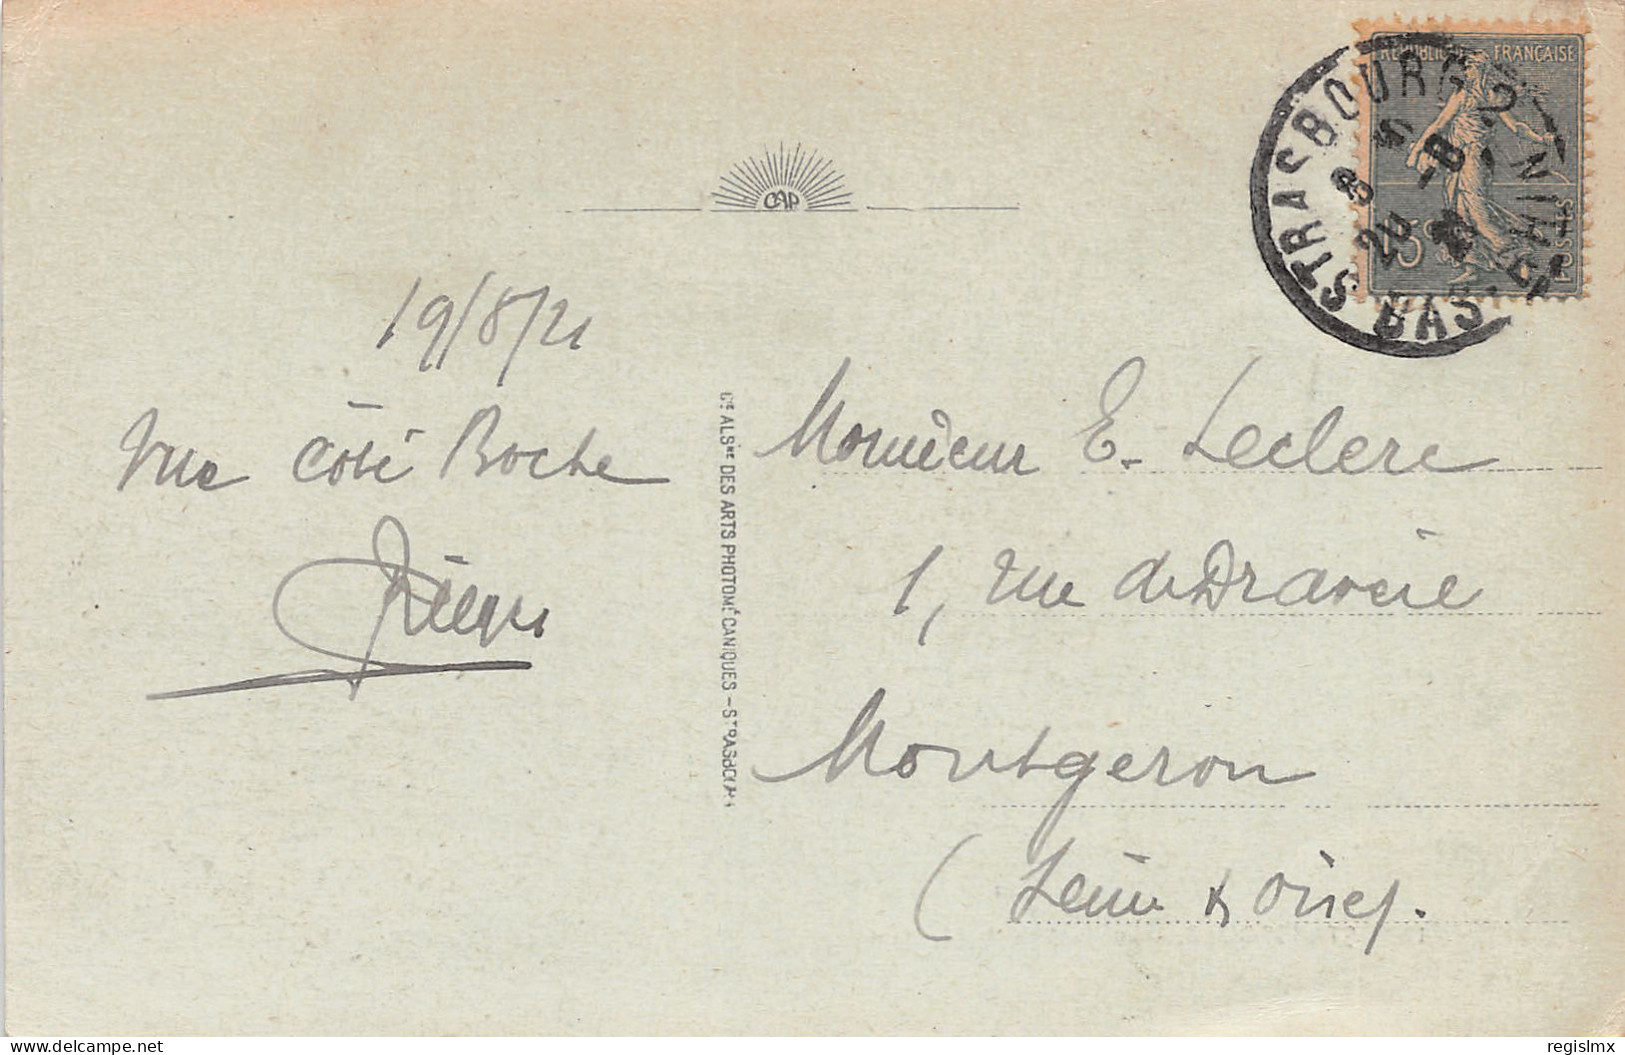 RÉPUBLIQUE FRANÇAISE
15c POSTES
STRASBOURG 2
8 45
20 -8
21
BAS-RHIN
CAP
19/8/21
Vue côté Boche
Cie ALSne DES ARTS PHOTOMÉCANIQUES - STRASBOURG
Monsieur E. Leclerc
1, rue de Draveil
Montgeron
(Seine & Oise).
www.delcampe.net
regislmx